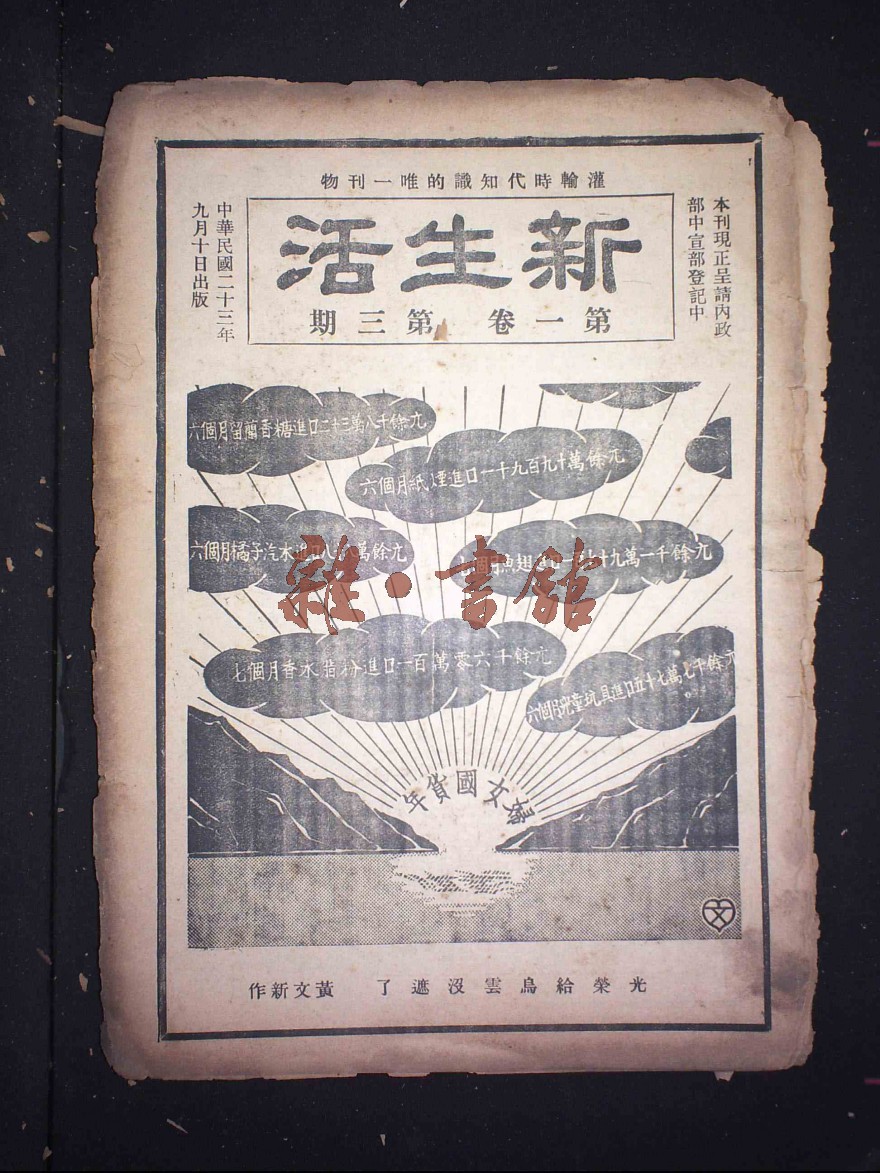 灌輸時代知識的唯一刊物
本刊現正呈請內政
部中宣部登記中
新生活
第一卷 第三期
中華民國二十三年
九月十日出版
六個月留蘭香糖進口二十三萬八千餘元
六個月紙煙進口一千九百九十萬餘元
六個月橘子汽水進口八萬餘元
個月魚翅進口一百十九萬一千餘元
七個月香水脂粉進口一百萬零六千餘元
六個月兒童玩具進口五十七萬七千餘元
婦女國貨年
文
光榮給烏雲沒遮了 黃文新作
雜·書館